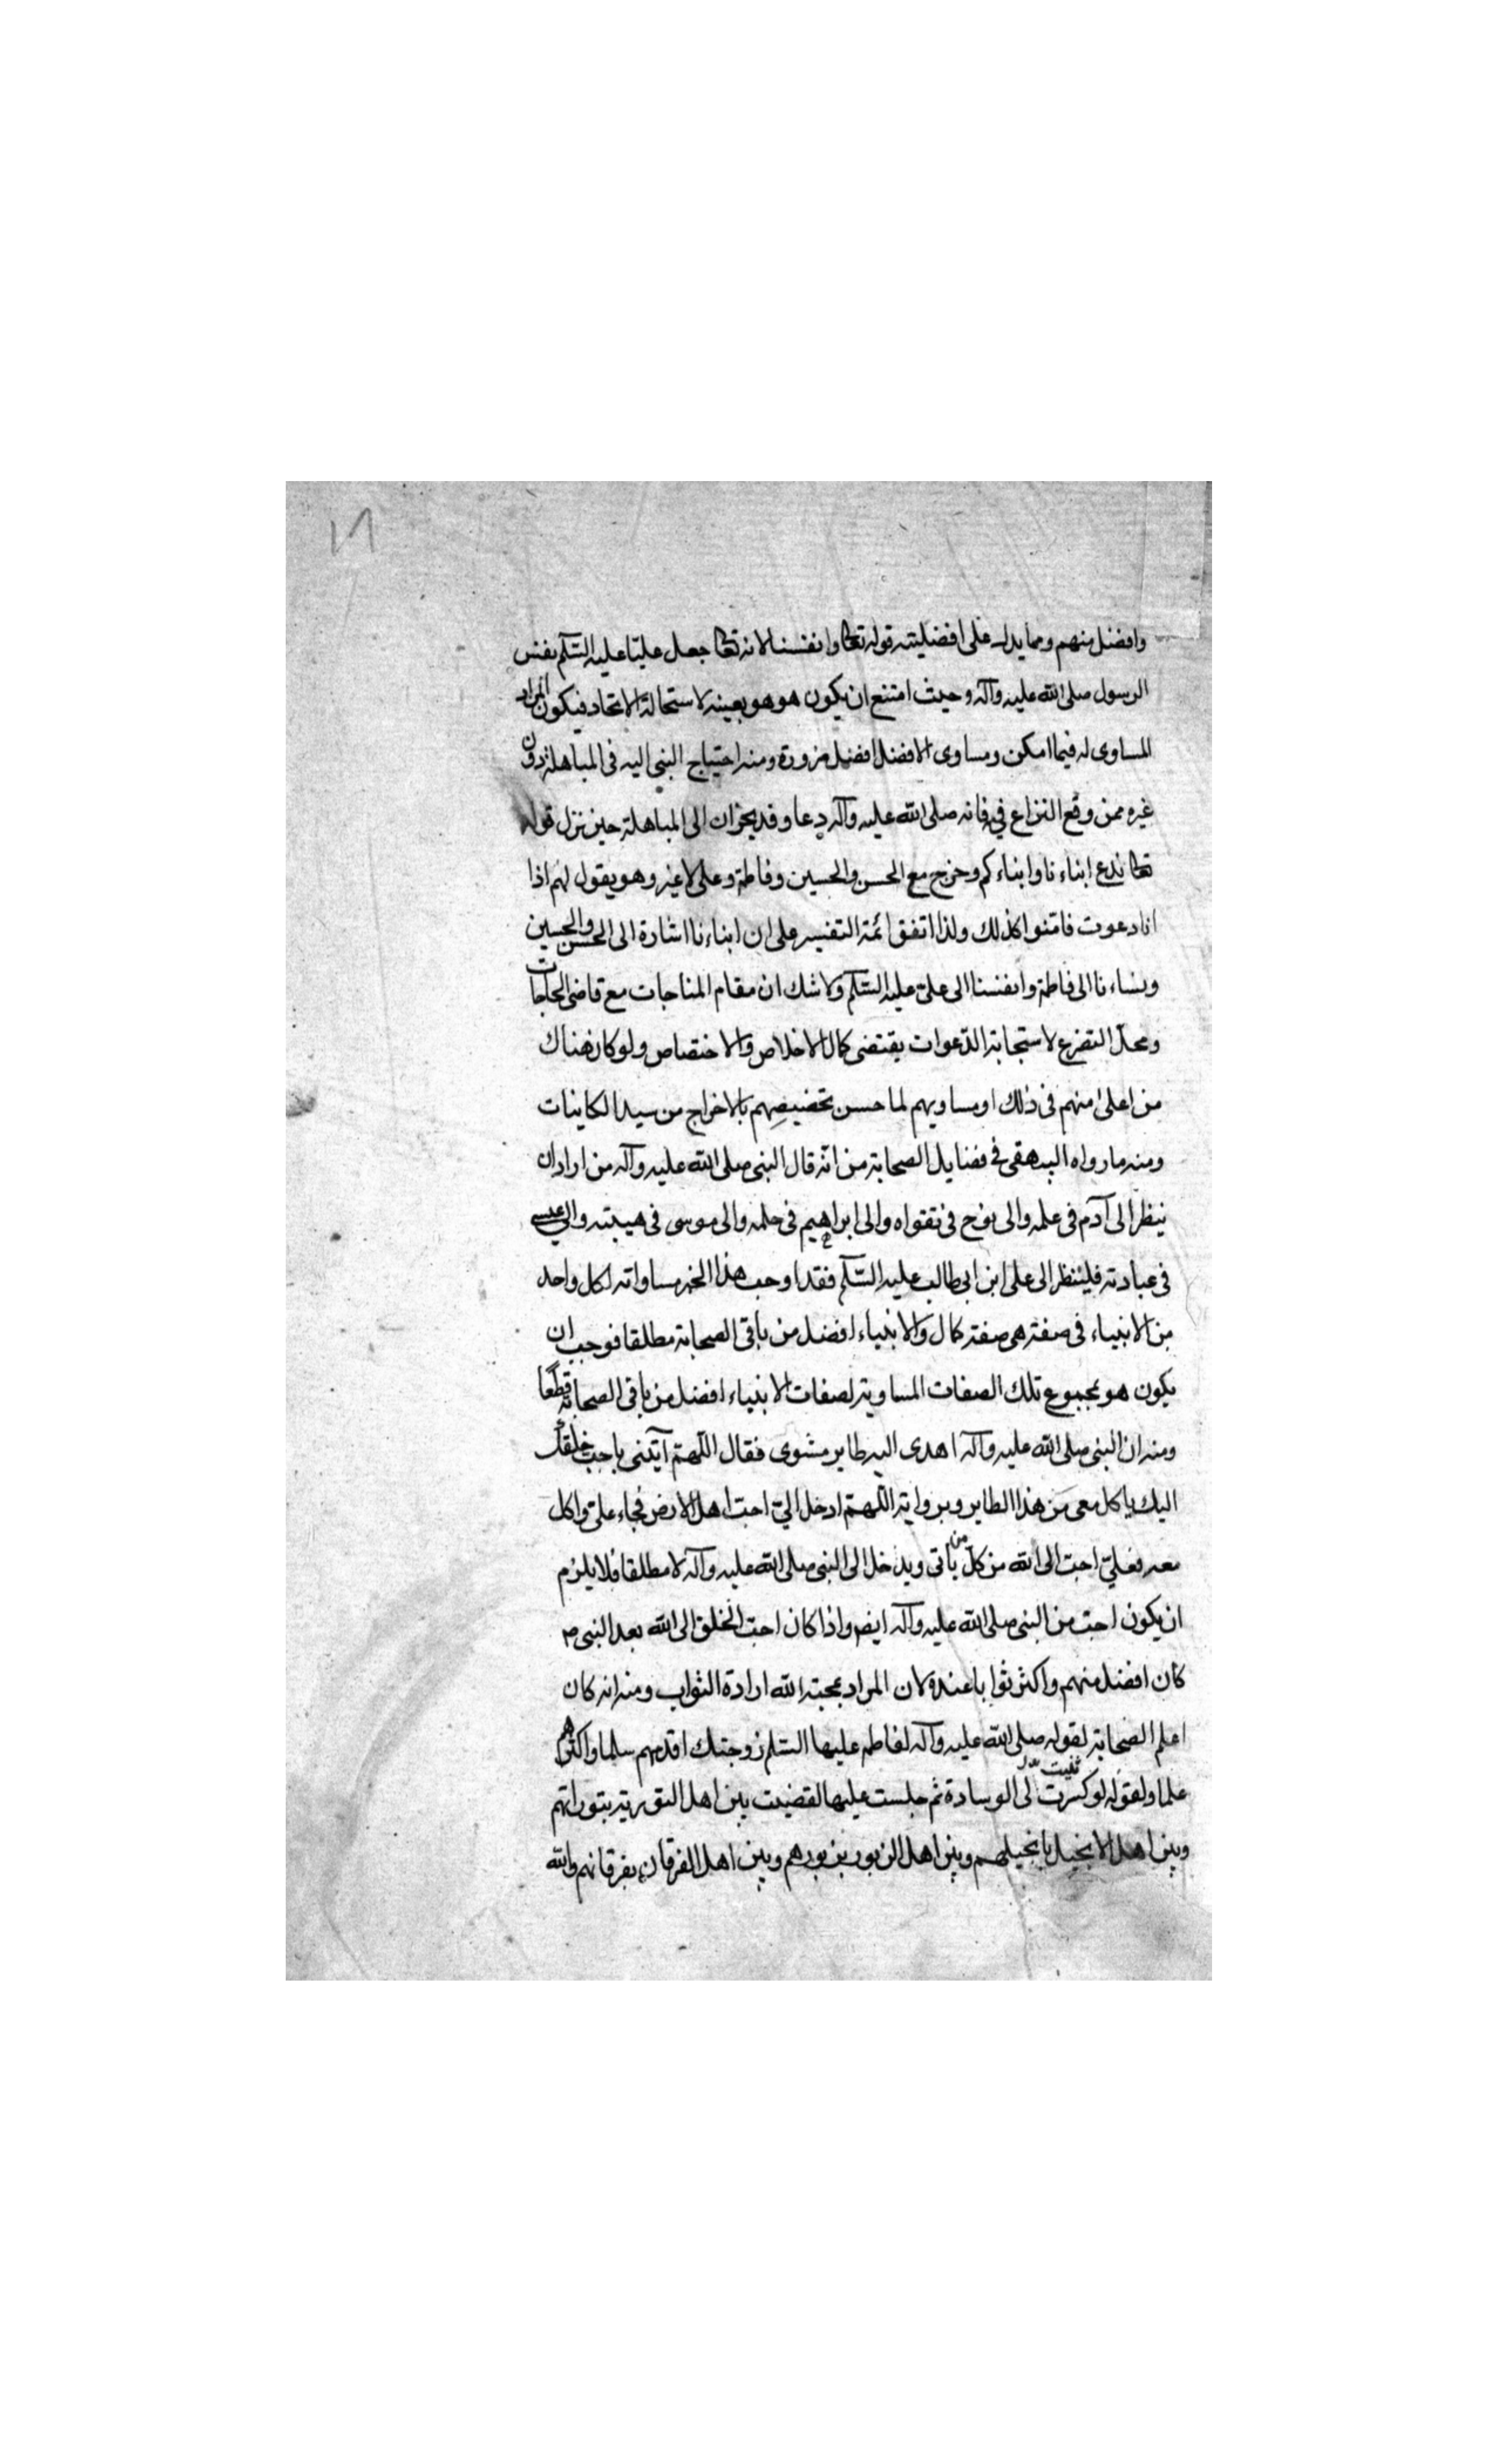 وافضل منهم ومما يدل على افضليته قوله تعا وانفسنا لانه تعا جعل عليّا عليه السّلم نفس
الرسول صلى الله عليه وآله وحيث امتنع ان يكون هو هو بعينه لاستحالة الاتحاد فيكون المراد
المساوى له فيما امكن ومساوى الافضل افضل ضرورة ومنه احتياج النبى اليه فى المباهلة دون
غيره ممن وقع النزاع فيه فانه صلى الله عليه وآله دعا وفد نجران الى المباهلة حين نزل قوله
تعا ندع ابناءنا وابناءكم وخرج مع الحسن والحسين وفاطمة وعلى لاغير وهو يقول لهم اذا
انا دعوت فامنوا كذلك ولذا اتفق ائمة التفسير على ان ابناءنا اشارة الى الحسن والحسين
ونساءنا الى فاطمة وانفسنا الى علىّ عليه السّلم ولاشك ان مقام المناجات مع قاضى الحاجات
ومحلّ التضرع لاستجابة الدّعوات يقتضى كمال الاخلاص والاختصاص ولو كان هناك
من اعلى منهم فى ذلك او مساويهم لما حسن تخصيصهم بالاخراج من سيد الكاينات
ومنه مارواه البيهقى فى فضايل الصحابة من انّه قال النبى صلى الله عليه وآله من اراد ان
ينظر الى آدم فى علمه والى نوح فى تقواه والى ابراهيم فى حلمه والى موسى فى هيبته والى عيسى
فى عبادته فلينظر الى على ابن ابى طالب عليه السّلم فقد اوجب هذا الخبر مساواته لكل واحد
من الانبياء فى صفة هى صفة كمال والانبياء افضل من باقى الصحابة مطلقا فوجب ان
يكون هو بمجموع تلك الصفات المساوية لصفات الانبياء افضل من باقى الصحابة قطعا
ومنه ان النبى صلى الله عليه وآله اهدى اليه طاير مشوى فقال اللّهمّ آيتنى باحب خلقك
اليك ياكل معى من هذا الطاير وبرواية اللّهمّ ادخل الىّ احبّ اهل الارض فجاء علىّ واكل
معه فعلىّ احبّ الى الله من كلّ من ياتى ويدخل الى النبى صلى الله عليه وآله لا مطلقا فلا يلزم
ان يكون احبّ من النبى صلى الله عليه وآله ايضا واذا كان احبّ الخلق الى الله بعد النبى ص
كان افضل منهم واكثر ثوابا عنده لان المراد بمحبة الله ارادة الثواب ومنه انه كان
اعلم الصحابة لقوله صلى الله عليه وآله لفاطمه عليها السّلم زوجتك اقدمهم سلما واكثرهم
علما ولقوله لو كسرت ثنيت لى الوسادة ثم جلست عليها لقضيت بين اهل التورية بتوراتهم
وبين اهل الانجيل بانجيلهم وبين اهل الزبور بزبورهم وبين اهل الفرقان بفرقانهم والله